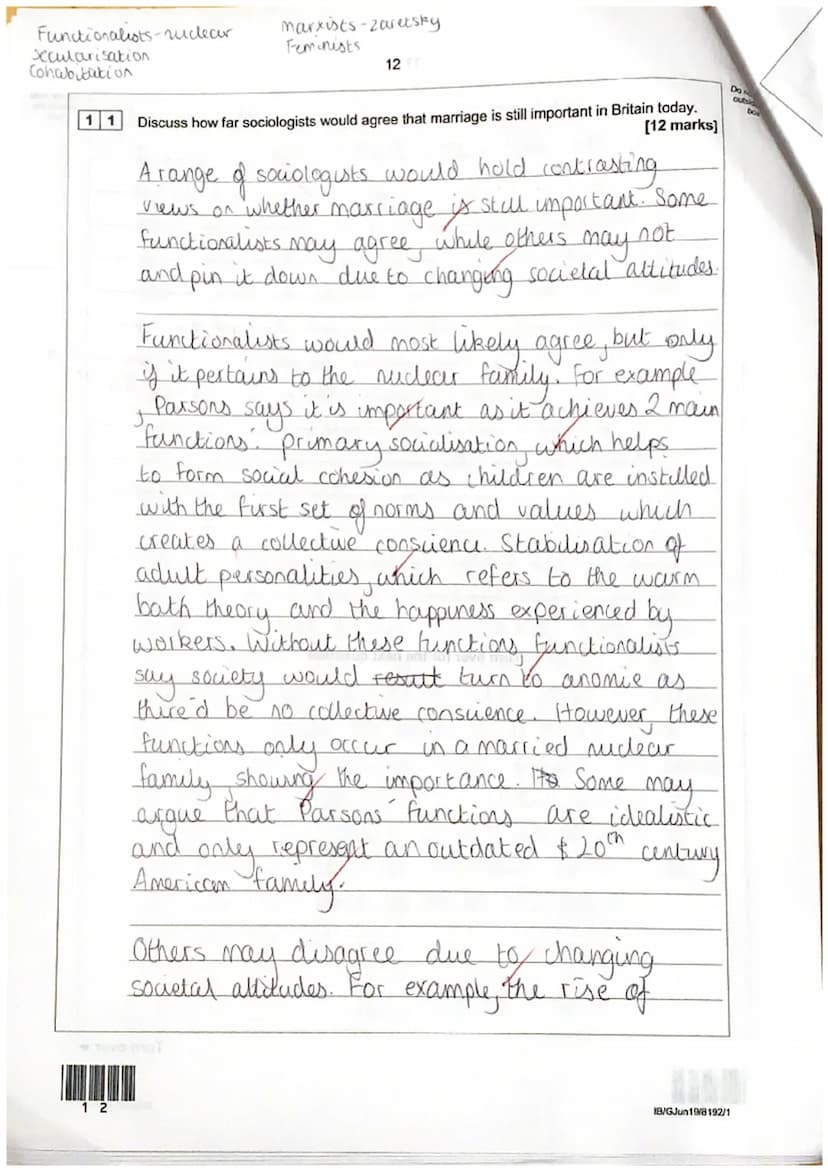 Functionalists - nuclear
secularisation
Cohabitation
Marxists - zaretsky
Feminists
12
Do n
outsi
bo
1 1 Discuss how far sociologists would agree that marriage is still important in Britain today.
[12 marks]
A range of sociologists would hold contrasting
views on whether marriage is still important. Some
functionalists may agree, while others may not
and pin it down due to changing societal attitudes.
Functionalists would most likely agree, but only
if it pertains to the nuclear family. For example
, Parsons says it is important as it achieves 2 main
functions: primary socialisation, which helps
to form social cohesion as children are instilled
with the first set of norms and values which
creates a collective conscience. Stabilisation of
adult personalities, which refers to the warm
bath theory and the happiness experienced by
workers. Without these functions, functionalists
say society would result turn to anomie as
there'd be no collective conscience. However, these
functions only occur in a married nuclear
family, showing the importance. Some may
argue that Parsons' functions are idealistic
and only represent an outdated 20th century
American family.
Others may disagree due to changing
societal attitudes. For example, the rise of
1 2
IB/G/Jun19/8192/1